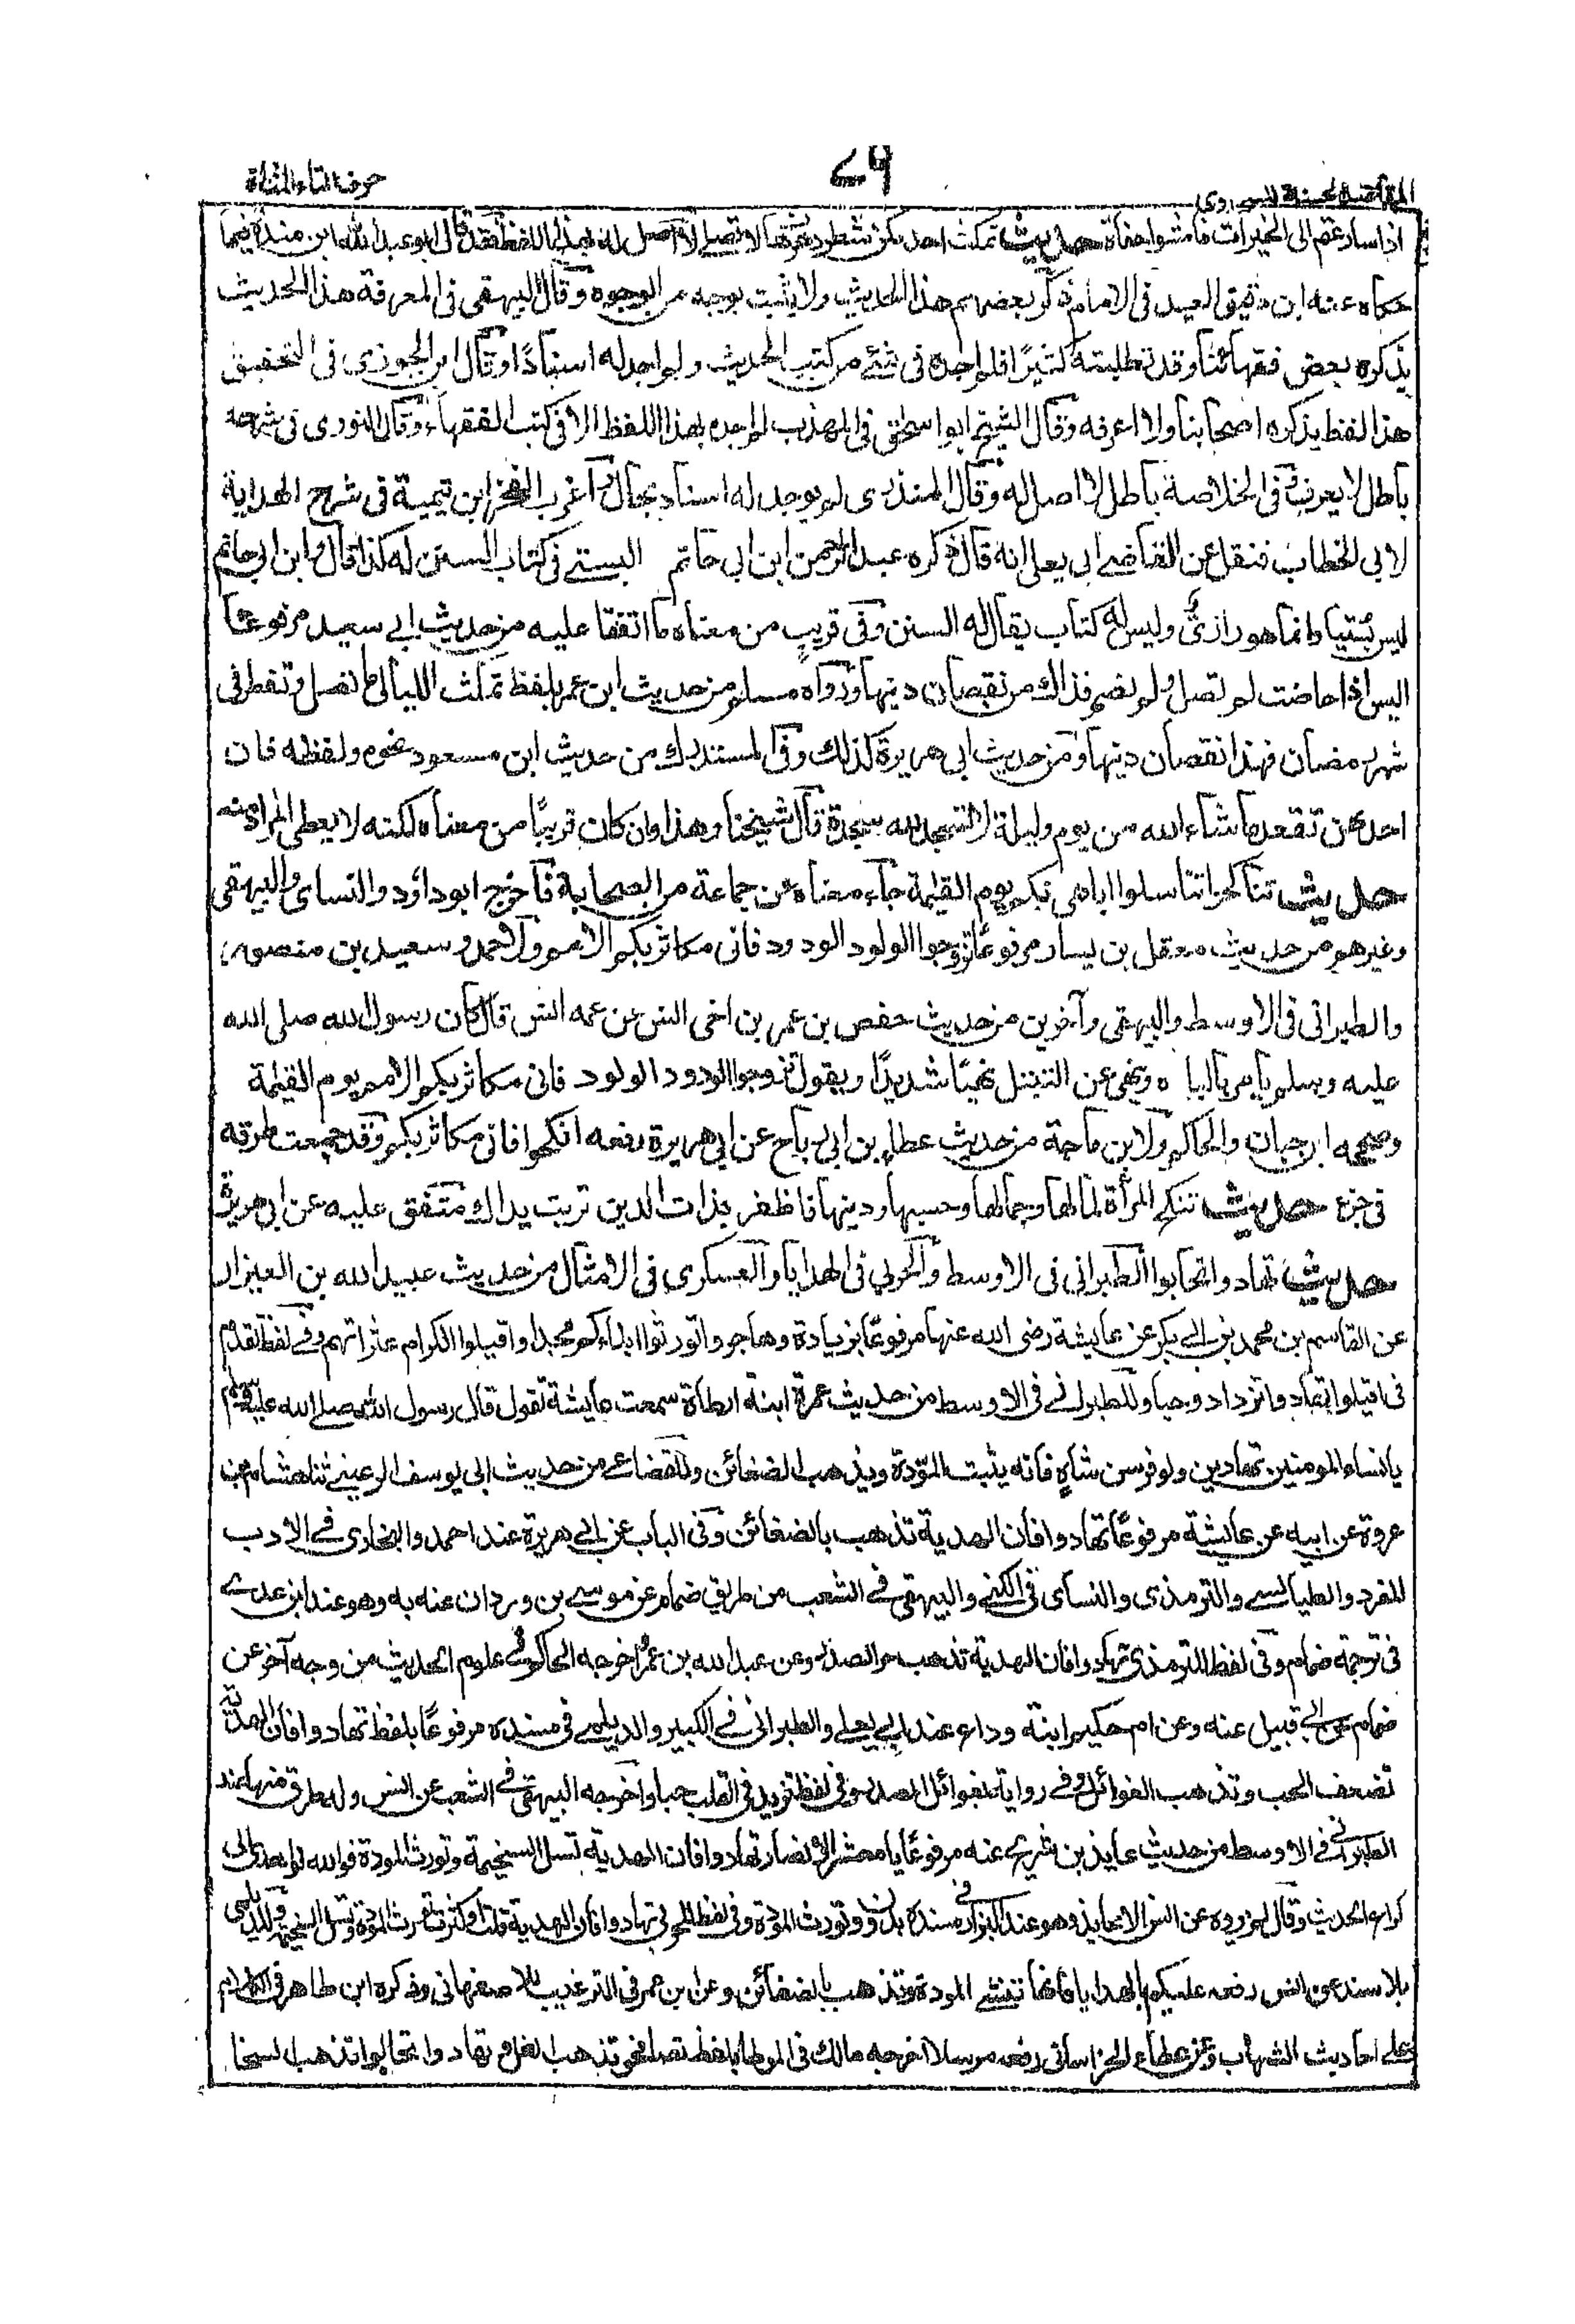 المقاصد الحسنة للسخاوي
٧٩
حرف التاء المثناة
اذا سارعتم الى الخيرات فامشوا حفاة حديث تمكث احدكن شطر دهرها لا تصلى لا اصل له بهذا اللفظ فقد قال ابو عبد الله ابن مندة فيما
حكاه عنه ابن دقيق العيد فى الامام ذكر بعضهم هذا الحديث ولا يثبت بوجه من الوجوه وقال البيهقى فى المعرفة هذا الحديث
يذكره بعض فقهائنا وقد تطلبته كثيرًا فلم اجده فى شئ من كتب الحديث ولم اجد له اسنادًا وقال ابن الجوزى فى التحقيق
هذا لفظ يذكره اصحابنا ولا اعرفه وقال الشيخ ابو اسحق فى المهذب لم اجده بهذا اللفظ الا فى كتب الفقهاء وقال النووى فى شرحه
باطل لا يعرف وفى الخلاصة باطل لا اصل له وقال المنذرى لم يوجد له اسناد بحال واغرب الفخر ابن تيمية فى شرح الهداية
لابى الخطاب فنقل عن القاضى ابى يعلى انه قال ذكره عبد الرحمن ابن ابى حاتم البستى فى كتاب السنن له كذا قال وابن ابى حاتم
ليس بُستيا وانما هو رازىٌّ وليس له كتاب يقال له السنن وفى قريب من معناه ما اتفقا عليه من حديث ابى سعيد مرفوعا
اليس اذا حاضت لم تصل ولم تصم فذاك من نقصان دينها ورواه مسلم من حديث ابن عمر بلفظ تمكث الليالى ما تصلى وتفطر فى
شهر رمضان فهذا نقصان دينها ومن حديث ابى هريرة كذلك وفى المستدرك من حديث ابن مسعود نحوه ولفظه فان
احدكن تقعد ما شاء الله من يوم وليلة لا تسجد لله سجدة قال شيخنا وهذا وان كان قريبًا من معناه لكنه لا يعطى المراد منه
حديث تناكحوا تناسلوا اباهى بكم يوم القيمة جاء معناه عن جماعة من الصحابة فاخرج ابو داؤد والنساى والبيهقى
وغيرهم من حديث معقل بن يسار مرفوعًا تزوجوا الولود الودود فانى مكاثر بكم الامم ولاحمد وسعيد بن منصور
والطبرانى فى الاوسط والبيهقى وآخرين من حديث حفص بن عمر بن اخى انس عن عمه انس قال كان رسول الله صلى الله
عليه وسلم يامر بالباه وينهى عن التبتل نهيًا شديدًا ويقول تزوجوا الودود الولود فانى مكاثر بكم الامم يوم القيمة
وصححه ابن حبان والحاكم ولابن ماجة من حديث عطاء بن ابى رباح عن ابى هريرة رفعه انكحوا فانى مكاثر بكم وقد جمعت طرقه
فى جزء حديث تنكح المرأة لمالها وجمالها وحسبها ودينها فاظفر بذات الدين تربت يداك متفق عليه عن ابى هريرة
حديث تهادوا تحابوا الطبرانى فى الاوسط والحربى فى الهدايا والعسكرى فى الامثال من حديث عبيد الله بن العيزار
عن القاسم بن محمد بن ابى بكر عن عايشة رضى الله عنها مرفوعًا بزيادة وهاجروا تورثوا ابناءكم مجدا واقيلوا الكرام عثراتهم وفى لفظ تقدم
فى اقيلوا تهادوا تزدادوا حبا وللطبرانى فى الاوسط من حديث عمرة ابنة ارطاة سمعت عايشة تقول قال رسول الله صلى الله عليه وسلم
يا نساء المومنين تهادين ولو فرسن شاةٍ فانه يثبت المودة ويذهب الضغائن وللقضاعى من حديث ابى يوسف الرعينى ثنا هشام عن
عروة عن ابيه عن عايشة مرفوعًا تهادوا فان الهدية تذهب بالضغائن وفى الباب عن ابى هريرة عند احمد والبخارى فى الادب
المفرد والطيالسى والترمذى والنساى فى الكنى والبيهقى فى الشعب من طريق ضمام عن موسى بن وردان عنه به وهو عند ابن عدى
فى ترجمة ضمام وفى لفظ الترمذى تهادوا فان الهدية تذهب وحر الصدر وعن عبد الله بن عمرو اخرجه الحاكم فى علوم الحديث من وجه آخر عن
ضمام عن ابى قبيل عنه وعن ام حكيم ابنة وداع عند ابى يعلى والطبرانى فى الكبير والديلمى فى مسنده مرفوعًا بلفظ تهادوا فان الهدية
تضعف الحب وتذهب الغوائل وفى رواية بغوائل الصدر وفى لفظ تزيد فى القلب حبا واخرجه البيهقى فى الشعب عن انس وله طرق منها عند
الطبرانى فى الاوسط من حديث عايذ بن شريح عنه مرفوعًا يا معشر الانصار تهادوا فان الهدية تسل السخيمة وتورث المودة فوالله لو اهدى الى
كراع الحديث وقال لم يروه عن انس الا عايذ وهو عند البزار فى مسنده بدون وتورث المودة وفى لفظ للحربى تهادوا فان الهدية قلت او كثرت تورث المودة وتسل السخيمة وللديلمى
بلا سند عن انس رفعه عليكم بالهدايا فانها تنشئ المودة وتذهب بالضغائن وعن ابن عمر فى الترغيب للاصفهانى وذكره ابن طاهر فى الكلام
على احاديث الشهاب وعن عطاء الخراسانى رفعه مرسلا اخرجه مالك فى الموطا بلفظ تصافحوا تذهب الغل وتهادوا تحابوا تذهب الشحنا